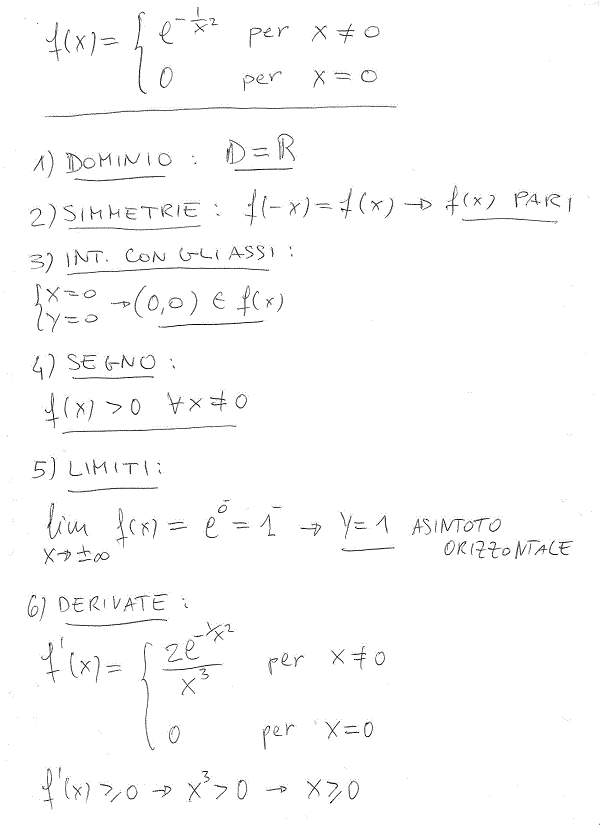 f(x) = { e^{-1/x^2} per x ≠ 0
0 per x = 0
1) DOMINIO : D = ℝ
2) SIMMETRIE : f(-x) = f(x) → f(x) PARI
3) INT. CON GLI ASSI :
{ x=0
y=0 → (0,0) ∈ f(x)
4) SEGNO :
f(x) > 0 ∀x ≠ 0
5) LIMITI :
lim f(x) = e^{0^-} = 1^- → y=1 ASINTOTO
x→±∞ ORIZZONTALE
6) DERIVATE :
f'(x) = { 2e^{-1/x^2} / x^3 per x ≠ 0
0 per x = 0
f'(x) ≥ 0 → x^3 > 0 → x ≥ 0